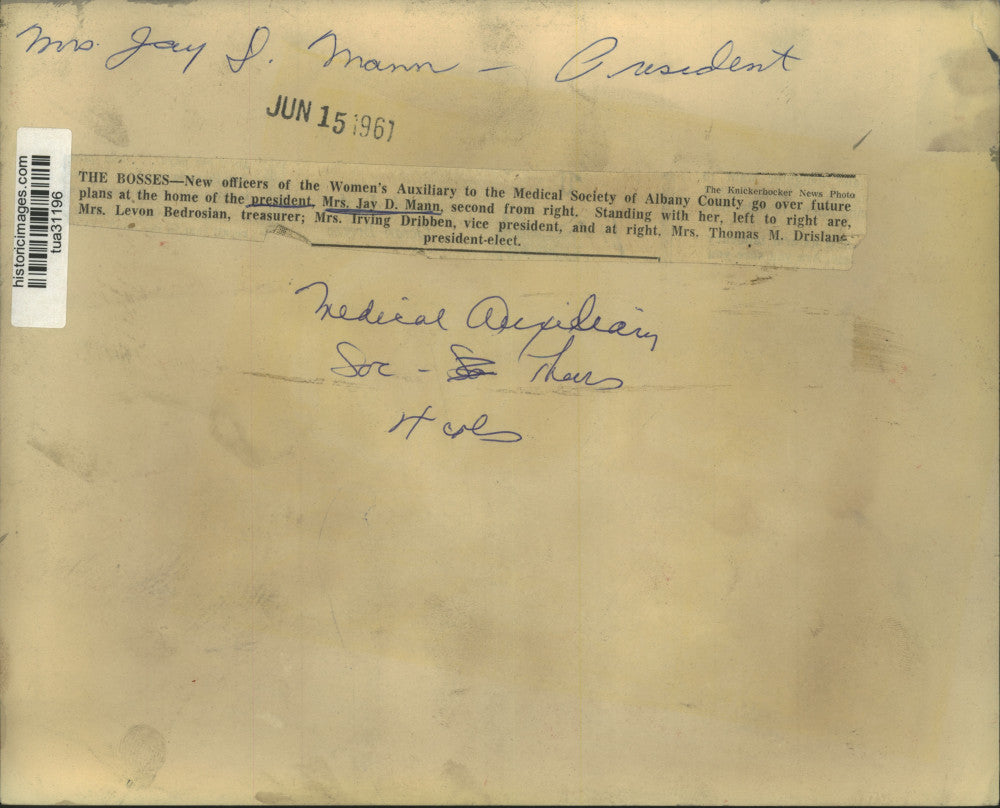 Mrs. Jay D. Mann — President
JUN 15 1961
historicimages.com
tua31196
The Knickerbocker News Photo
THE BOSSES—New officers of the Women's Auxiliary to the Medical Society of Albany County go over future
plans at the home of the president, Mrs. Jay D. Mann, second from right. Standing with her, left to right are,
Mrs. Levon Bedrosian, treasurer; Mrs. Irving Dribben, vice president, and at right, Mrs. Thomas M. Drislane
president-elect.
Medical Auxiliary
Soc - Thurs
4 cols